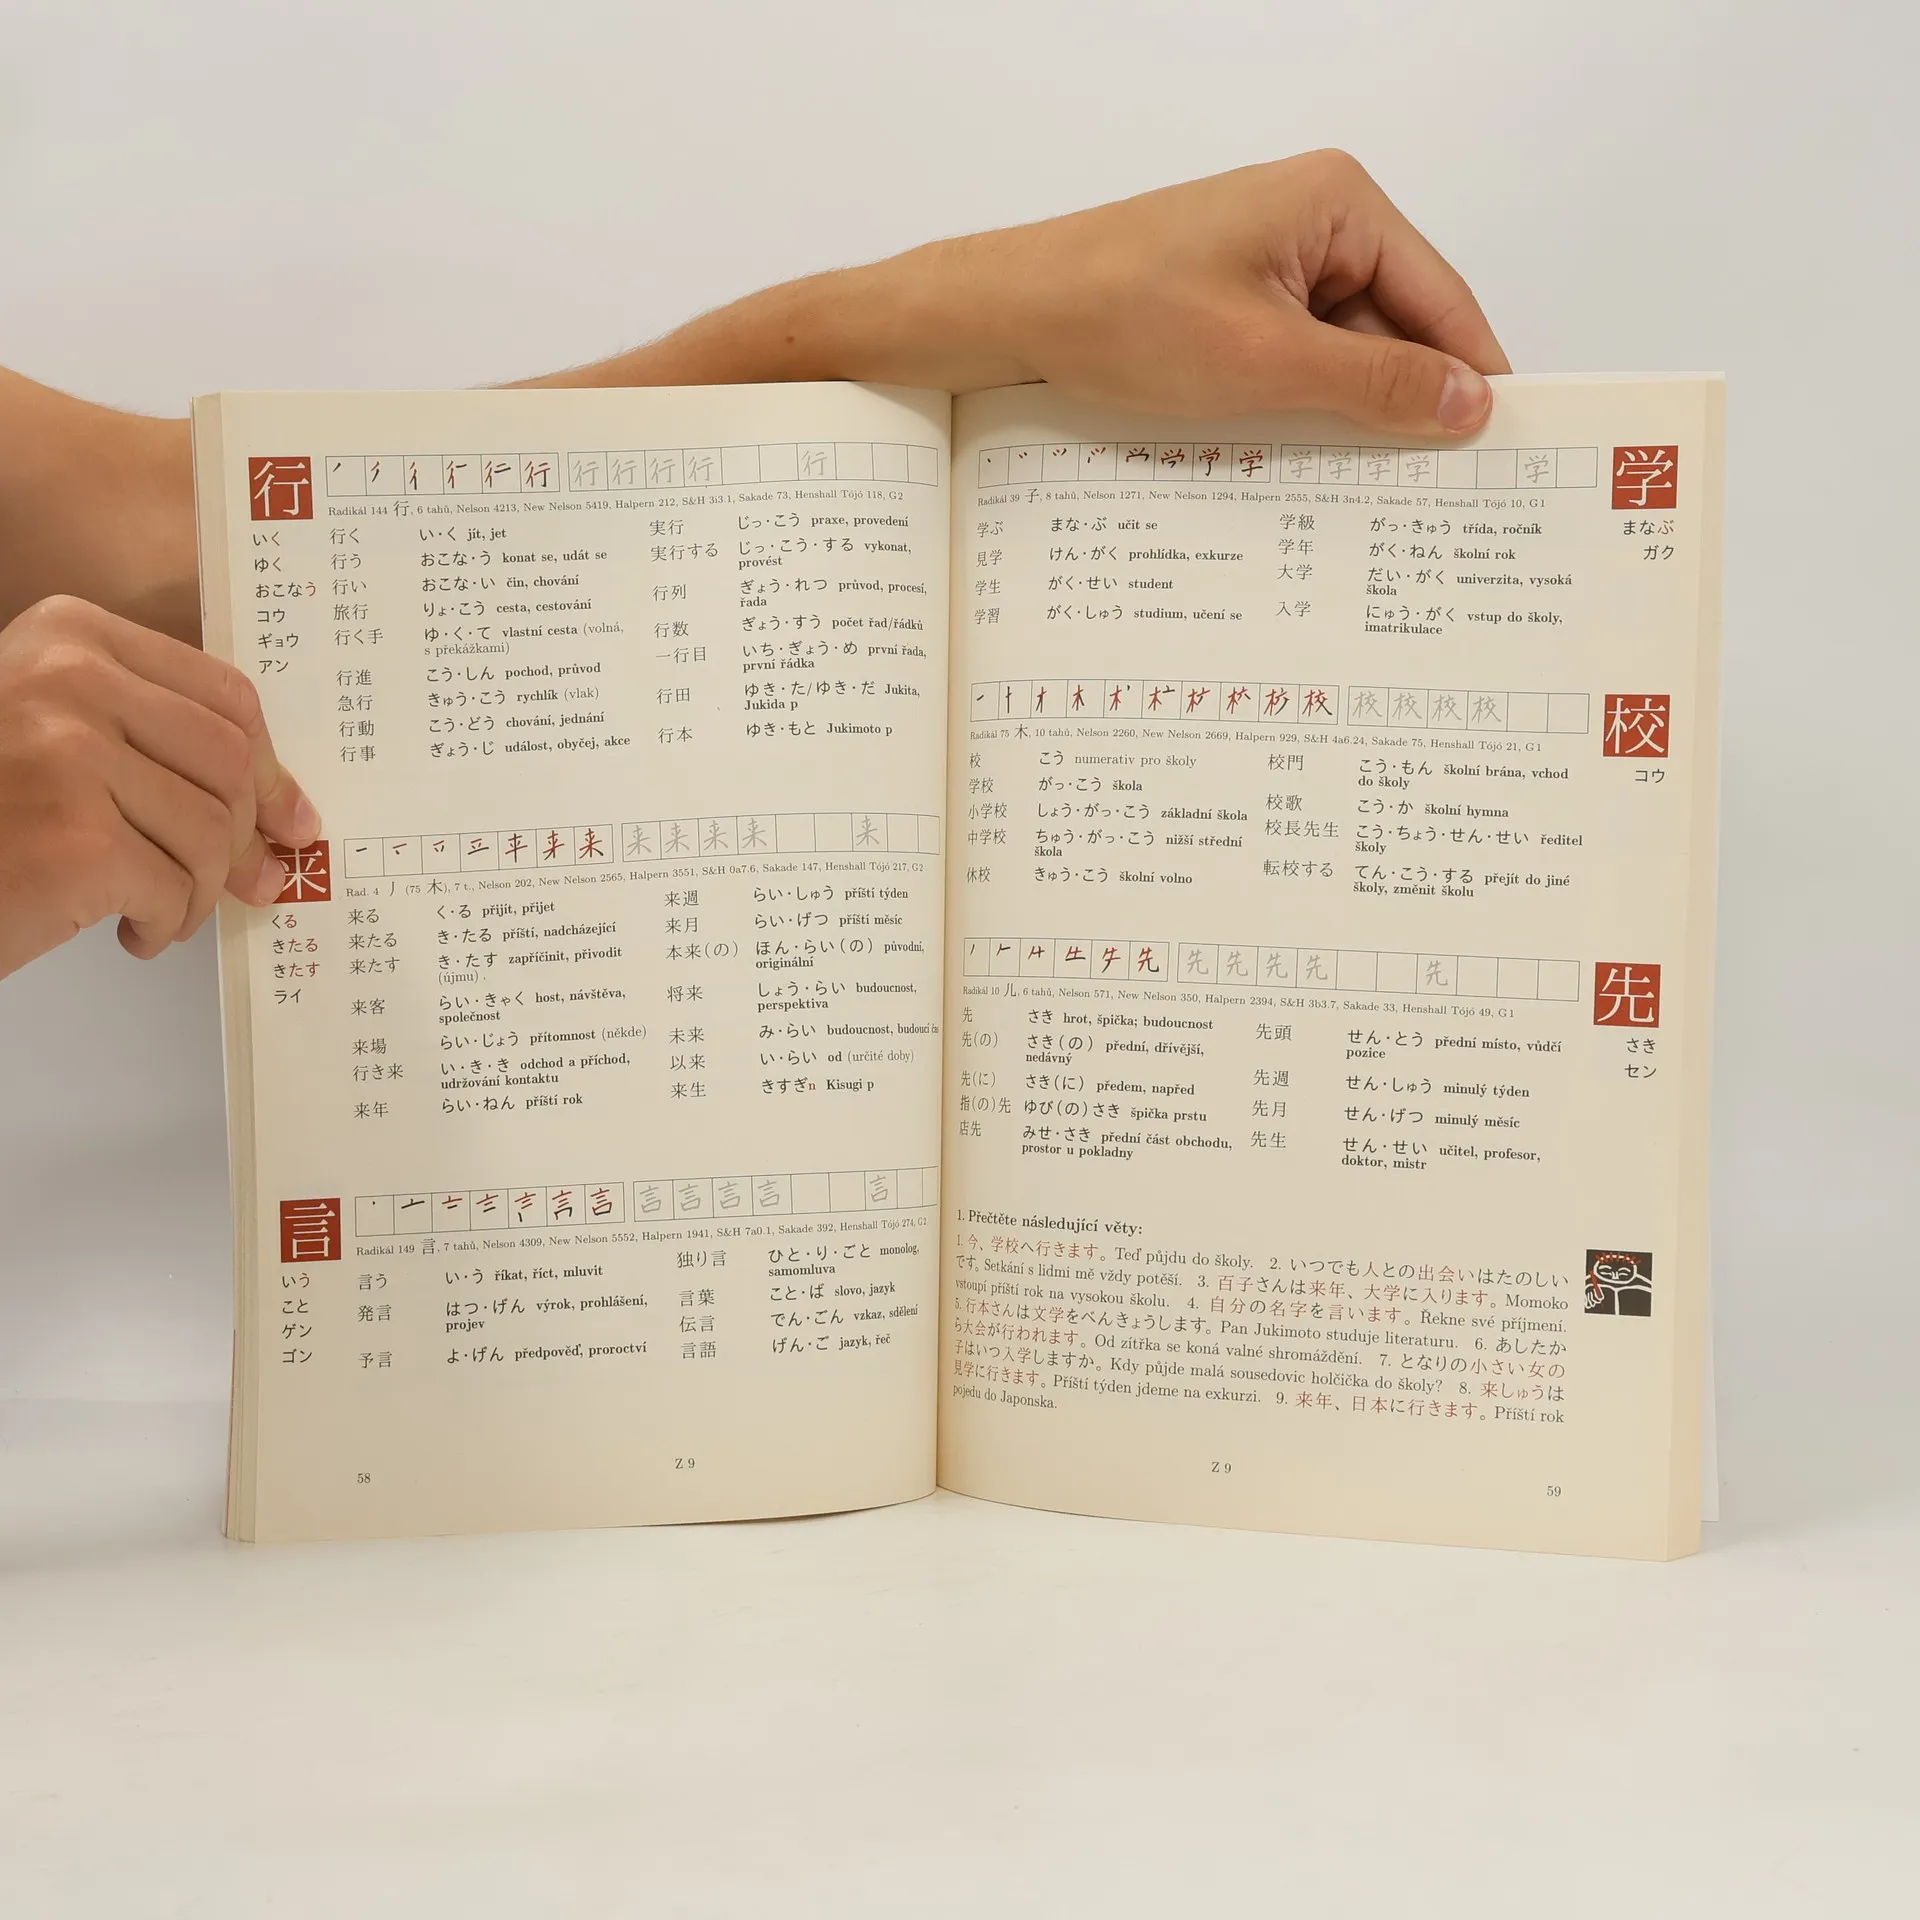 行
いく
ゆく
おこなう
コウ
ギョウ
アン
行 行 行 行 行 行
Radikál 144 行, 6 tahů, Nelson 4213, New Nelson 5419, Halpern 212, S&H 3i3.1, Sakade 73, Henshall Tójó 118, G2
行く い・く jít, jet
行う おこな・う konat se, udát se
行い おこな・い čin, chování
旅行 りょ・こう cesta, cestování
行く手 ゆ・く・て vlastní cesta (volná,
s překážkami)
行進 こう・しん pochod, průvod
急行 きゅう・こう rychlík (vlak)
行動 こう・どう chování, jednání
行事 ぎょう・じ událost, obyčej, akce
実行 じっ・こう praxe, provedení
実行する じっ・こう・する vykonat,
provést
行列 ぎょう・れつ průvod, procesí,
řada
行数 ぎょう・すう počet řad/řádků
一行目 いち・ぎょう・め první řada,
první řádka
行田 ゆき・た/ゆき・だ Jukita,
Jukida p
行本 ゆき・もと Jukimoto p
来
くる
きたる
きたす
ライ
来 来 来 来 来 来
Rad. 4 丿 (75 木), 7 t., Nelson 202, New Nelson 2565, Halpern 3551, S&H 0a7.6, Sakade 147, Henshall Tójó 217, G2
来る く・る přijít, přijet
来たる き・たる příští, nadcházející
来たす き・たす zapříčinit, přivodit
(újmu) .
来客 らい・きゃく host, návštěva,
společnost
来場 らい・じょう přítomnost (někde)
行き来 い・き・き odchod a příchod,
udržování kontaktu
来年 らい・ねん příští rok
来週 らい・しゅう příští týden
来月 らい・げつ příští měsíc
本来(の) ほん・らい(の) původní,
originální
将来 しょう・らい budoucnost,
perspektiva
未来 み・らい budoucnost, budoucí
以来 い・らい od (určité doby)
来生 きすぎn Kisugi p
言
いう
こと
ゲン
ゴン
言 言 言 言 言 言
Radikál 149 言, 7 tahů, Nelson 4309, New Nelson 5552, Halpern 1941, S&H 7a0.1, Sakade 392, Henshall Tójó 274, G2
言う い・う říkat, říct, mluvit
発言 はつ・げん výrok, prohlášení,
projev
予言 よ・げん předpověď, proroctví
独り言 ひと・り・ごと monolog,
samomluva
言葉 こと・ば slovo, jazyk
伝言 でん・ごん vzkaz, sdělení
言語 げん・ご jazyk, řeč
58
Z 9
学
まなぶ
ガク
学 学 学 学 学 学
Radikál 39 子, 8 tahů, Nelson 1271, New Nelson 1294, Halpern 2555, S&H 3n4.2, Sakade 57, Henshall Tójó 10, G1
学ぶ まな・ぶ učit se
見学 けん・がく prohlídka, exkurze
学生 がく・せい student
学習 がく・しゅう studium, učení se
学級 がっ・きゅう třída, ročník
学年 がく・ねん školní rok
大学 だい・がく univerzita, vysoká
škola
入学 にゅう・がく vstup do školy,
imatrikulace
校
コウ
校 校 校 校 校
Radikál 75 木, 10 tahů, Nelson 2260, New Nelson 2669, Halpern 929, S&H 4a6.24, Sakade 75, Henshall Tójó 21, G1
校 こう numerativ pro školy
学校 がっ・こう škola
小学校 しょう・がっ・こう základní škola
中学校 ちゅう・がっ・こう nižší střední
škola
休校 きゅう・こう školní volno
校門 こう・もん školní brána, vchod
do školy
校歌 こう・か školní hymna
校長先生 こう・ちょう・せん・せい ředitel
školy
転校する てん・こう・する přejít do jiné
školy, změnit školu
先
さき
セン
先 先 先 先 先 先
Radikál 10 儿, 6 tahů, Nelson 571, New Nelson 350, Halpern 2394, S&H 3b3.7, Sakade 33, Henshall Tójó 49, G1
先 さき hrot, špička; budoucnost
先(の) さき(の) přední, dřívější,
nedávný
先(に) さき(に) předem, napřed
指(の)先 ゆび(の)さき špička prstu
店先 みせ・さき přední část obchodu,
prostor u pokladny
先頭 せん・とう přední místo, vůdčí
pozice
先週 せん・しゅう minulý týden
先月 せん・げつ minulý měsíc
先生 せん・せい učitel, profesor,
doktor, mistr
1. Přečtěte následující věty:
1. 今、学校へ行きます。Teď půjdu do školy. 2. いつでも人との出会いはたのしい
です。Setkání s lidmi mě vždy potěší. 3. 百子さんは来年、大学に入ります。Momoko
vstoupí příští rok na vysokou školu. 4. 自分の名字を言います。Řekne své příjmení.
5. 行本さんは文学をべんきょうします。Pan Jukimoto studuje literaturu. 6. あしたか
ら大会が行われます。Od zítřka se koná valné shromáždění. 7. となりの小さい女の
子はいつ入学しますか。Kdy půjde malá sousedovic holčička do školy? 8. 来しゅうは
見学に行きます。Příští týden jdeme na exkurzi. 9. 来年、日本に行きます。Příští rok
pojedu do Japonska.
Z 9
59